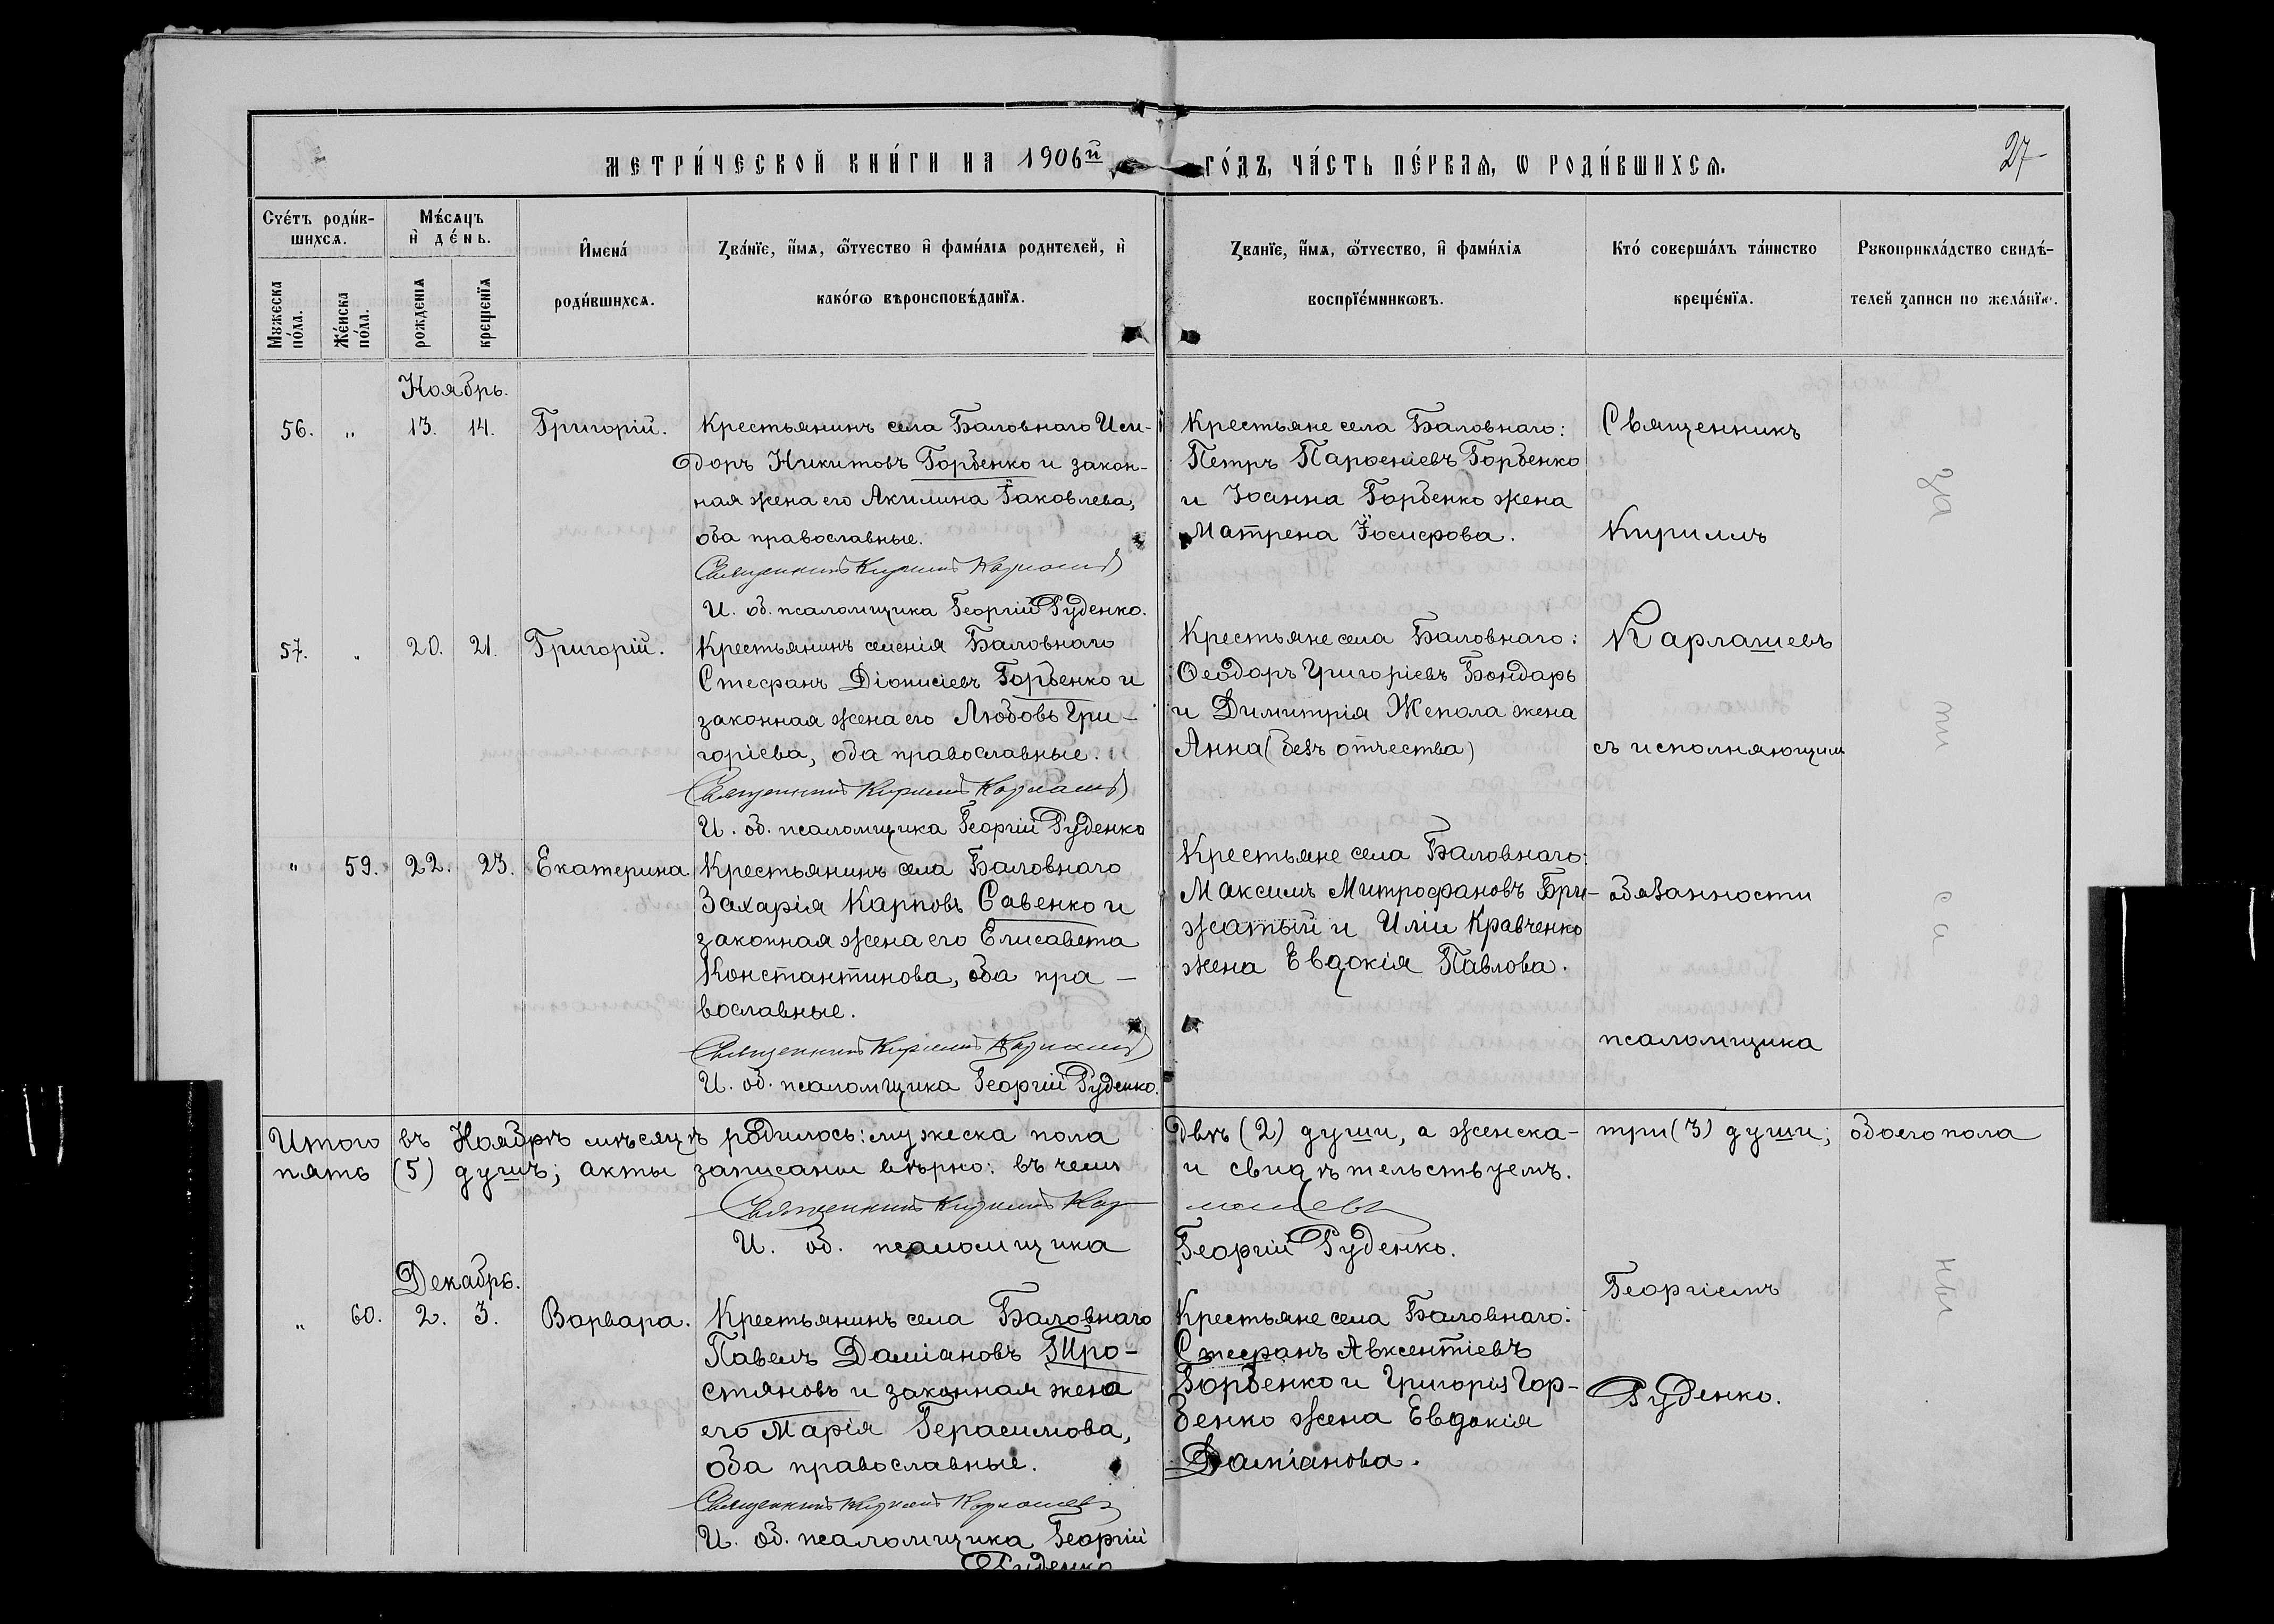 МЕТРИ́ЧЕСКОЙ КНИ́ГИ НА 1906й ГО́ДЪ, ЧА́СТЬ ПЕ́РВАѦ, Ѡ РОДИ́ВШИХСѦ.
27
Счетъ роди́в-
шихсѧ.
Мѣ́сѧцъ
и҆ де́нь.
Мꙋжеска
по́ла.
Же́нска
по́ла.
рожденїѧ
крещенїѧ
И҆мена́
роди́вшихсѧ.
Ꙁва́нїе, и҆́мѧ, ѻ҆́тчество и҆ фами́лїѧ родителей, и҆
како́гѡ вѣроисповѣ́данїѧ.
Ꙁванїе, и҆́мѧ, ѻ҆́тчество, и҆ фами́лїѧ
воспрїе́мникѡвъ.
Кто́ соверша́лъ та́инство
креще́нїѧ.
Рꙋкоприкла́дство свидѣ́-
телей ꙁаписи по жела́нїю.
Ноябрь.
56. " 13. 14. Григорій.
Крестьянинъ села Баловнаго Иси-
доръ Никитовъ Горбенко и закон-
ная жена его Акилина Іаковлева,
оба православные.
Священникъ Кириллъ Карлашевъ
И. об. псаломщика Георгій Руденко.
Крестьяне села Баловнаго:
Петръ Парѳеніевъ Горбенко
и Іоанна Горбенко жена
Матрена Іосифова.
Священникъ
Кириллъ
57. " 20. 21. Григорій.
Крестьянинъ селенія Баловнаго
Стефанъ Діонисіевъ Горбенко и
законная жена его Любовь Гри-
горіева, оба православные.
Священникъ Кириллъ Карлашевъ
И. об. псаломщика Георгій Руденко
Крестьяне села Баловнаго:
Ѳеодоръ Григоріевъ Бондарь
и Димитрія Жепола жена
Анна (безъ отчества)
Карлашевъ
съ исполняющим
" 59. 22. 23. Екатерина.
Крестьянинъ села Баловнаго
Захарія Карповъ Савенко и
законная жена его Елисавета
Константинова, оба пра-
вославные.
Священникъ Кириллъ Карлашевъ
И. об. псаломщика Георгій Руденко.
Крестьяне села Баловнаго:
Максимъ Митрофановъ Бри-
жатый и Иліи Кравченко
жена Евдокія Павлова.
обязанности
псаломщика
Итого въ Ноябрѣ мѣсяцѣ родилось: мужеска пола двѣ (2) души, а женска- три (3) души; обоего пола
пять (5) душъ; акты записаны вѣрно: въ чемъ и свидѣтельствуемъ.
Священникъ Кириллъ Карлашевъ
И. об. псаломщика Георгій Руденко.
Декабрь.
" 60. 2. 3. Варвара.
Крестьянинъ села Баловнаго
Павелъ Даміановъ Тро-
стяновъ и законная жена
его Марія Герасимова,
оба православные.
Священникъ Кириллъ Карлашевъ
И. об. псаломщика Георгій
Руденко
Крестьяне села Баловнаго:
Стефанъ Авксентіевъ
Горбенко и Григорія Гор-
бенко жена Евдокія
Даміанова.
Георгіемъ
Руденко.